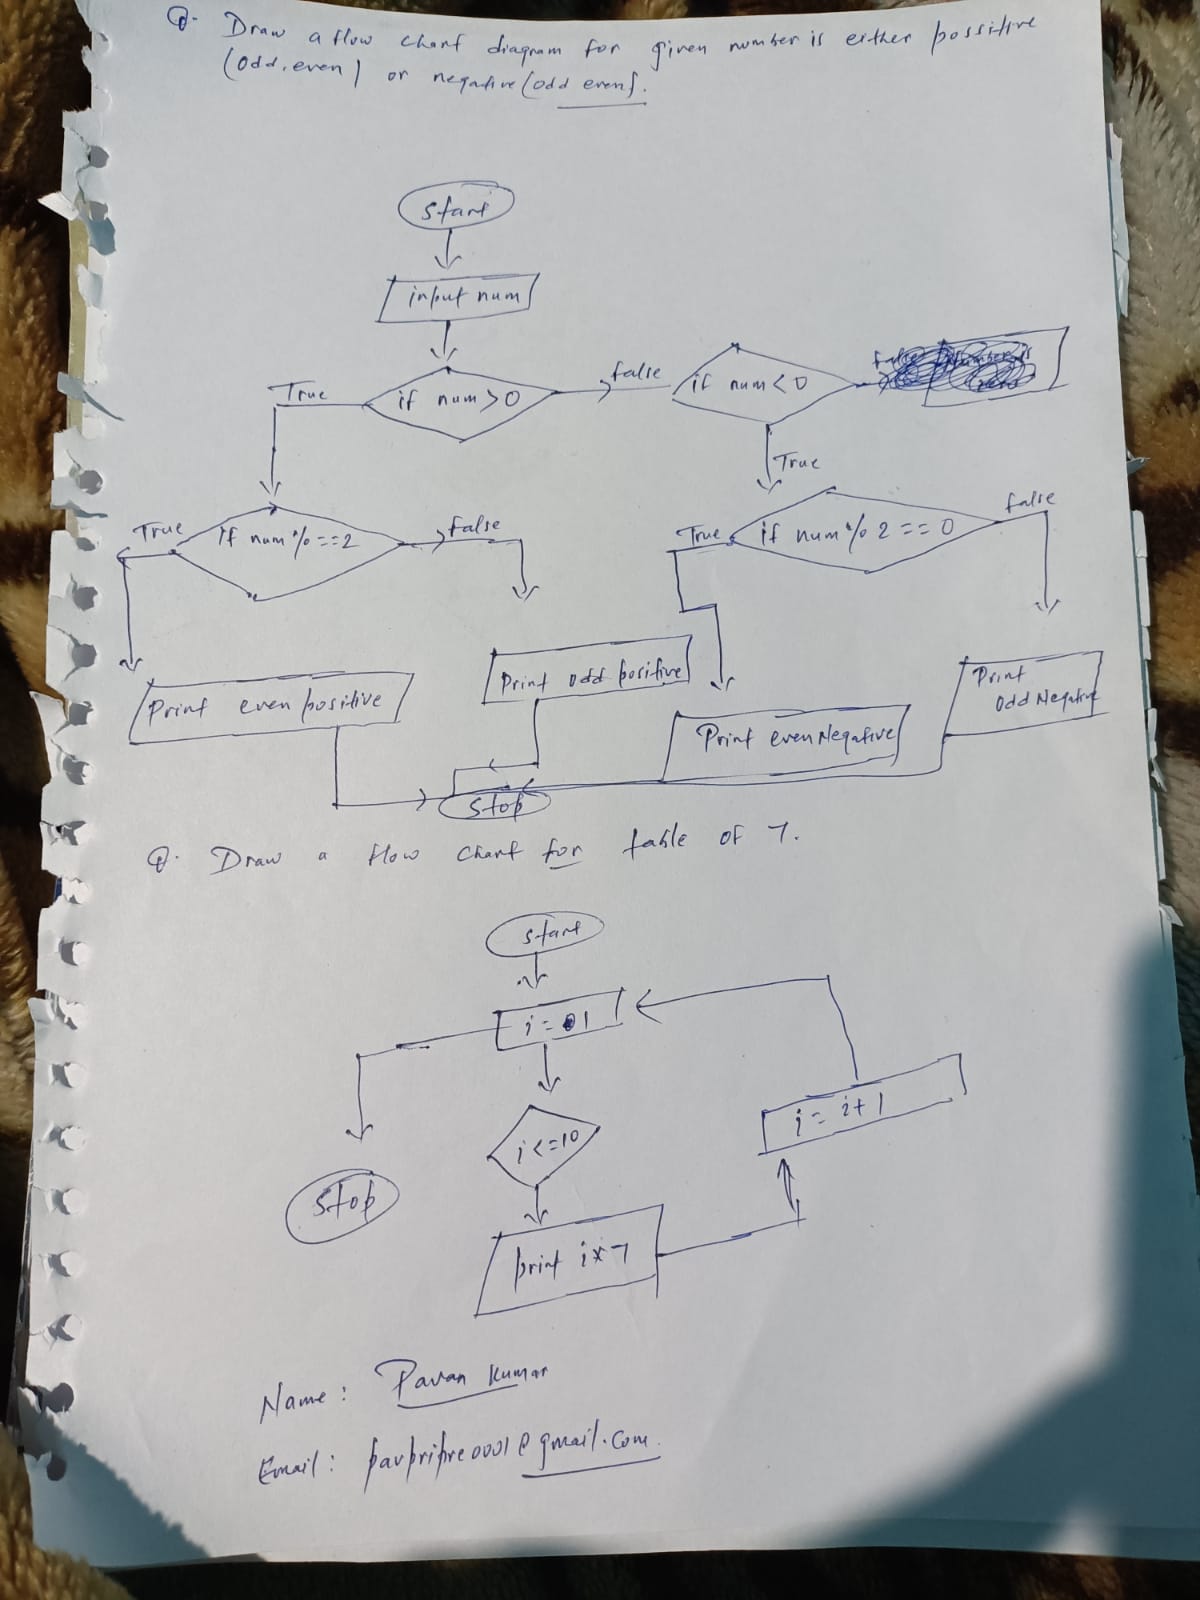 Q. Draw a flow chart diagram for given number is either possitive
(odd, even) or negative (odd even).
Start
input num
True
if num > 0
false
if num < 0
True
True
if num % == 2
false
True
if num % 2 == 0
false
Print even positive
Print odd positive
Print even Negative
Print
odd Negative
Stop
Q. Draw a flow chart for table of 7.
start
i = 01
i <= 10
i = i + 1
Stop
print i x 7
Name : Pavan Kumar
Email : pavpripre0001@gmail.com.